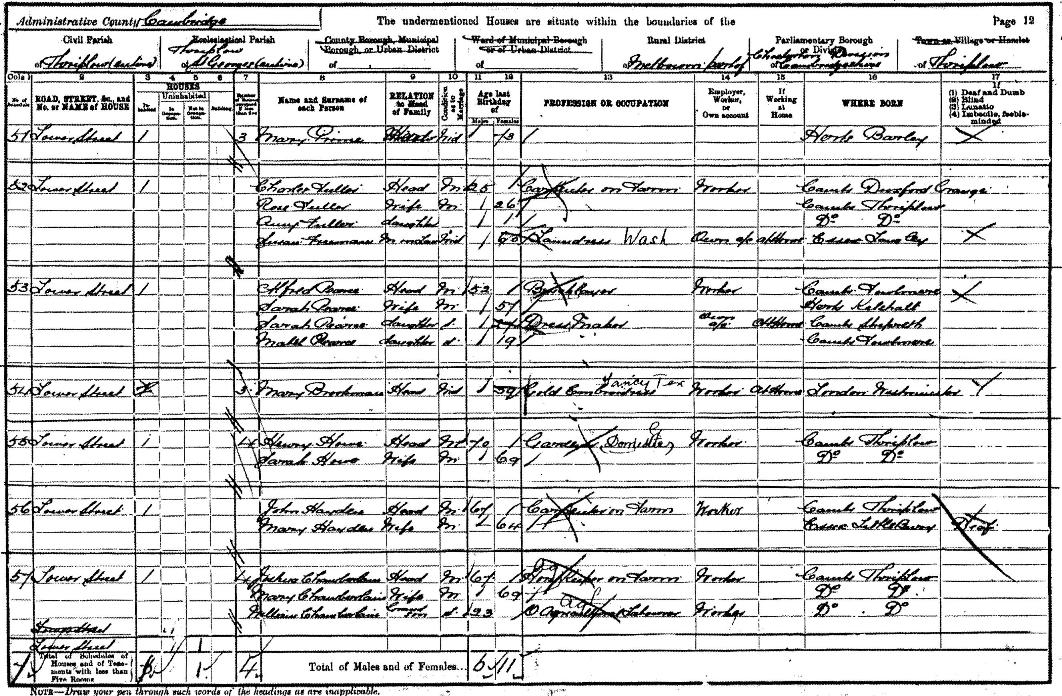 Administrative County Cambridge The undermentioned Houses are situate within the boundaries of the Page 12
Civil Parish Ecclesiastical Parish County Borough, Municipal Borough, or Urban District Ward of Municipal Borough or of Urban District Rural District Parliamentary Borough or Division Town or Village or Hamlet
of Thriplow (entire) of Thriplow St George (entire) of of of Melbourn of Chesterton Division Cambridgeshire of Thriplow
Cols 1 2 3 4 5 6 7 8 9 10 11 12 13 14 15 16 17
ROAD, STREET, &c., and No. or NAME of HOUSE HOUSES Inhabited Uninhabited In Occupation Not in Occupation Building Name and Surname of each Person RELATION to Head of Family Condition as to Marriage Age last Birthday of Males Females PROFESSION OR OCCUPATION Employer, Worker, or Own account If Working at Home WHERE BORN If (1) Deaf and Dumb (2) Blind (3) Lunatic (4) Imbecile, feeble-minded
51 Lower Street 1 3 Mary Prime Head Wid 73 Herts Barley
52 Lower Street 1 Charles Fuller Head M 25 Carpenter on Farm Worker Cambs Duxford Grange
Rose Fuller Wife M 26 Cambs Thriplow
Amy Fuller daughter 1 Do Do
Susan Freeman M in Law Wid Laundress Wash Own a/c At Home Essex
53 Lower Street 1 Alfred Pearce Head M 53 Bricklayer Worker Cambs Fowlmere
Sarah Pearce Wife M 51 Herts Kelshall
Sarah Pearce daughter s Dress Maker Own a/c At Home Cambs Shepreth
Mabel Pearce daughter s 19 Cambs Fowlmere
54 Lower Street 3 Mary Brookman Head Wid 59 Gold Embroidress Fancy Tex Worker At Home London Westminster
55 Lower Street 1 4 Henry Howe Head M 70 Gardener Domestic Worker Cambs Thriplow
Sarah Howe Wife M 69 Do Do
56 Lower Street 1 John Hayden Head M 67 Carpenter on Farm Worker Cambs Thriplow
Mary Hayden Wife M 64 Essex Deaf
57 Lower Street 1 4 Joshua Chamberlain Head M 67 on Farm Worker Cambs Thriplow
Mary Chamberlain Wife M 69 Do Do
William Chamberlain s 23 Agricultural Labourer Worker Do Do
Lower Street
7 Total of Schedules of Houses and of Tenements with less than Five Rooms 1 4 Total of Males and of Females... 6 11
NOTE—Draw your pen through such words of the headings as are inapplicable.